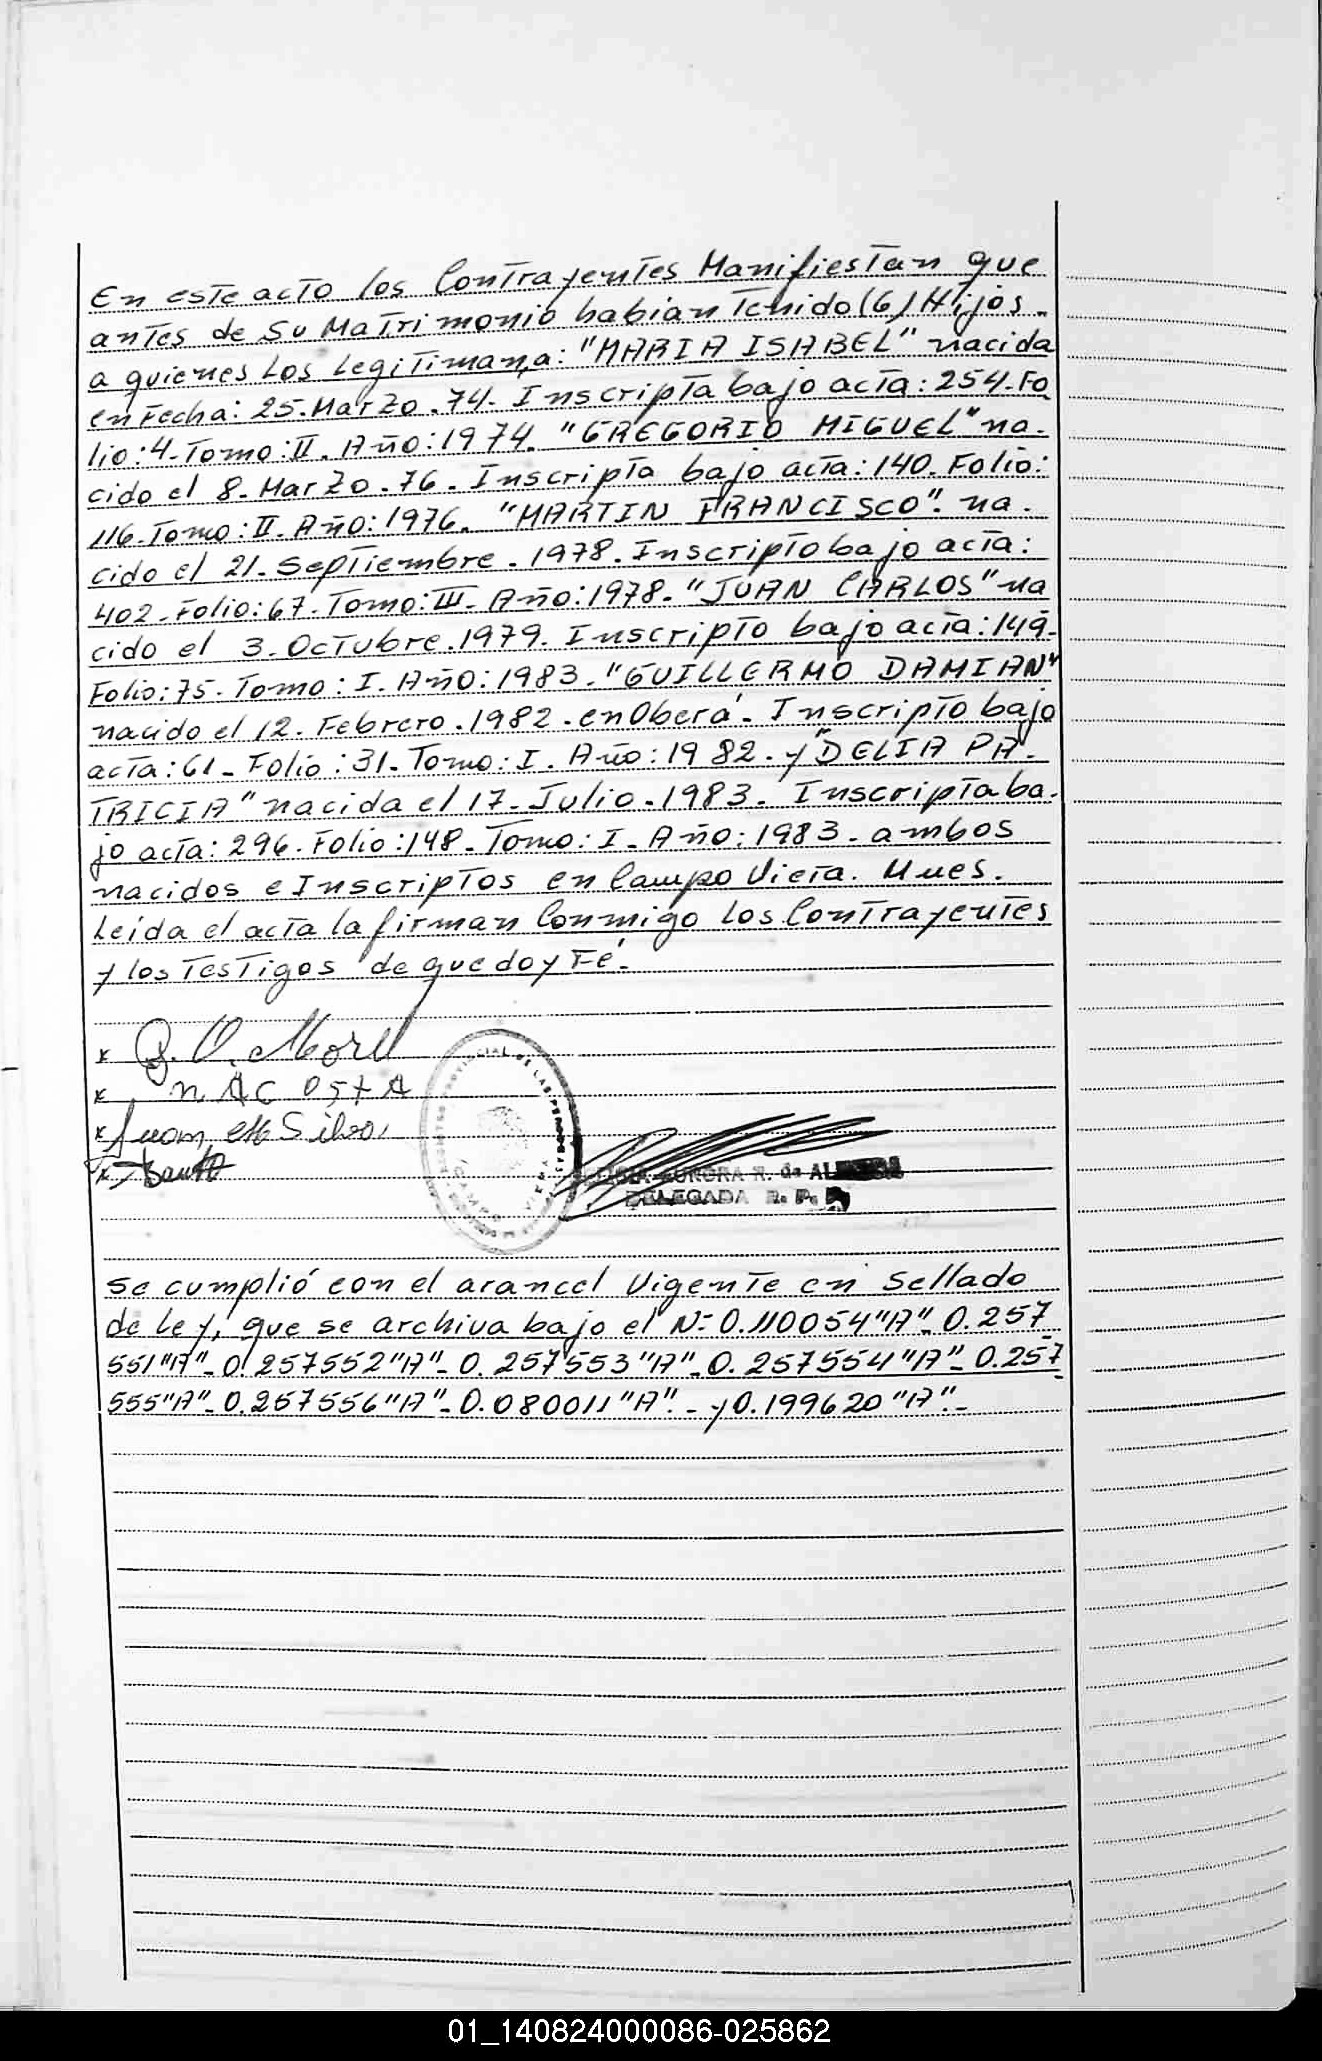 En este acto los Contrayentes Manifiestan que
antes de Su Matrimonio habian Tenido (6) Hijos.
a quienes Los Legitiman, a: "MARIA ISABEL" nacida
en Fecha: 25. Marzo. 74. Inscripta bajo acta: 254. Fo
lio: 4. Tomo: II. Año: 1974. "GREGORIO MIGUEL" na.
cido el 8. Marzo. 76. Inscripto bajo acta: 140. Folio:
116. Tomo: II. Año: 1976. "MARTIN FRANCISCO". na.
cido el 21. Septiembre. 1978. Inscripto bajo acta:
402. Folio: 67. Tomo: III. Año: 1978. "JUAN CARLOS" na
cido el 3. Octubre. 1979. Inscripto bajo acta: 149.
Folio: 75. Tomo: I. Año: 1983. "GUILLERMO DAMIAN"
nacido el 12. Febrero. 1982. en Oberá. Inscripto bajo
acta: 61. Folio: 31. Tomo: I. Año: 1982. y "DELIA PA.
TRICIA" nacida el 17. Julio. 1983. Inscripta ba.
jo acta: 296. Folio: 148. Tomo: I. Año: 1983. ambos
nacidos e Inscriptos en Campo Viera. Mnes.
Leida el acta la firman Conmigo Los Contrayentes
y los Testigos de que doy Fé.
x
x n AC OSTA
x Juan M Silva
x
AURORA R. de
DELEGADA R. P.
Se cumplió con el arancel Vigente en Sellado
de Ley, que se archiva bajo el Nº 0.110054 "A"- 0.257
551 "A"- 0.257552 "A"- 0.257553 "A"- 0.257554 "A"- 0.257
555 "A"- 0.257556 "A"- 0.080011 "A".- y 0.199620 "A".-
01_140824000086-025862